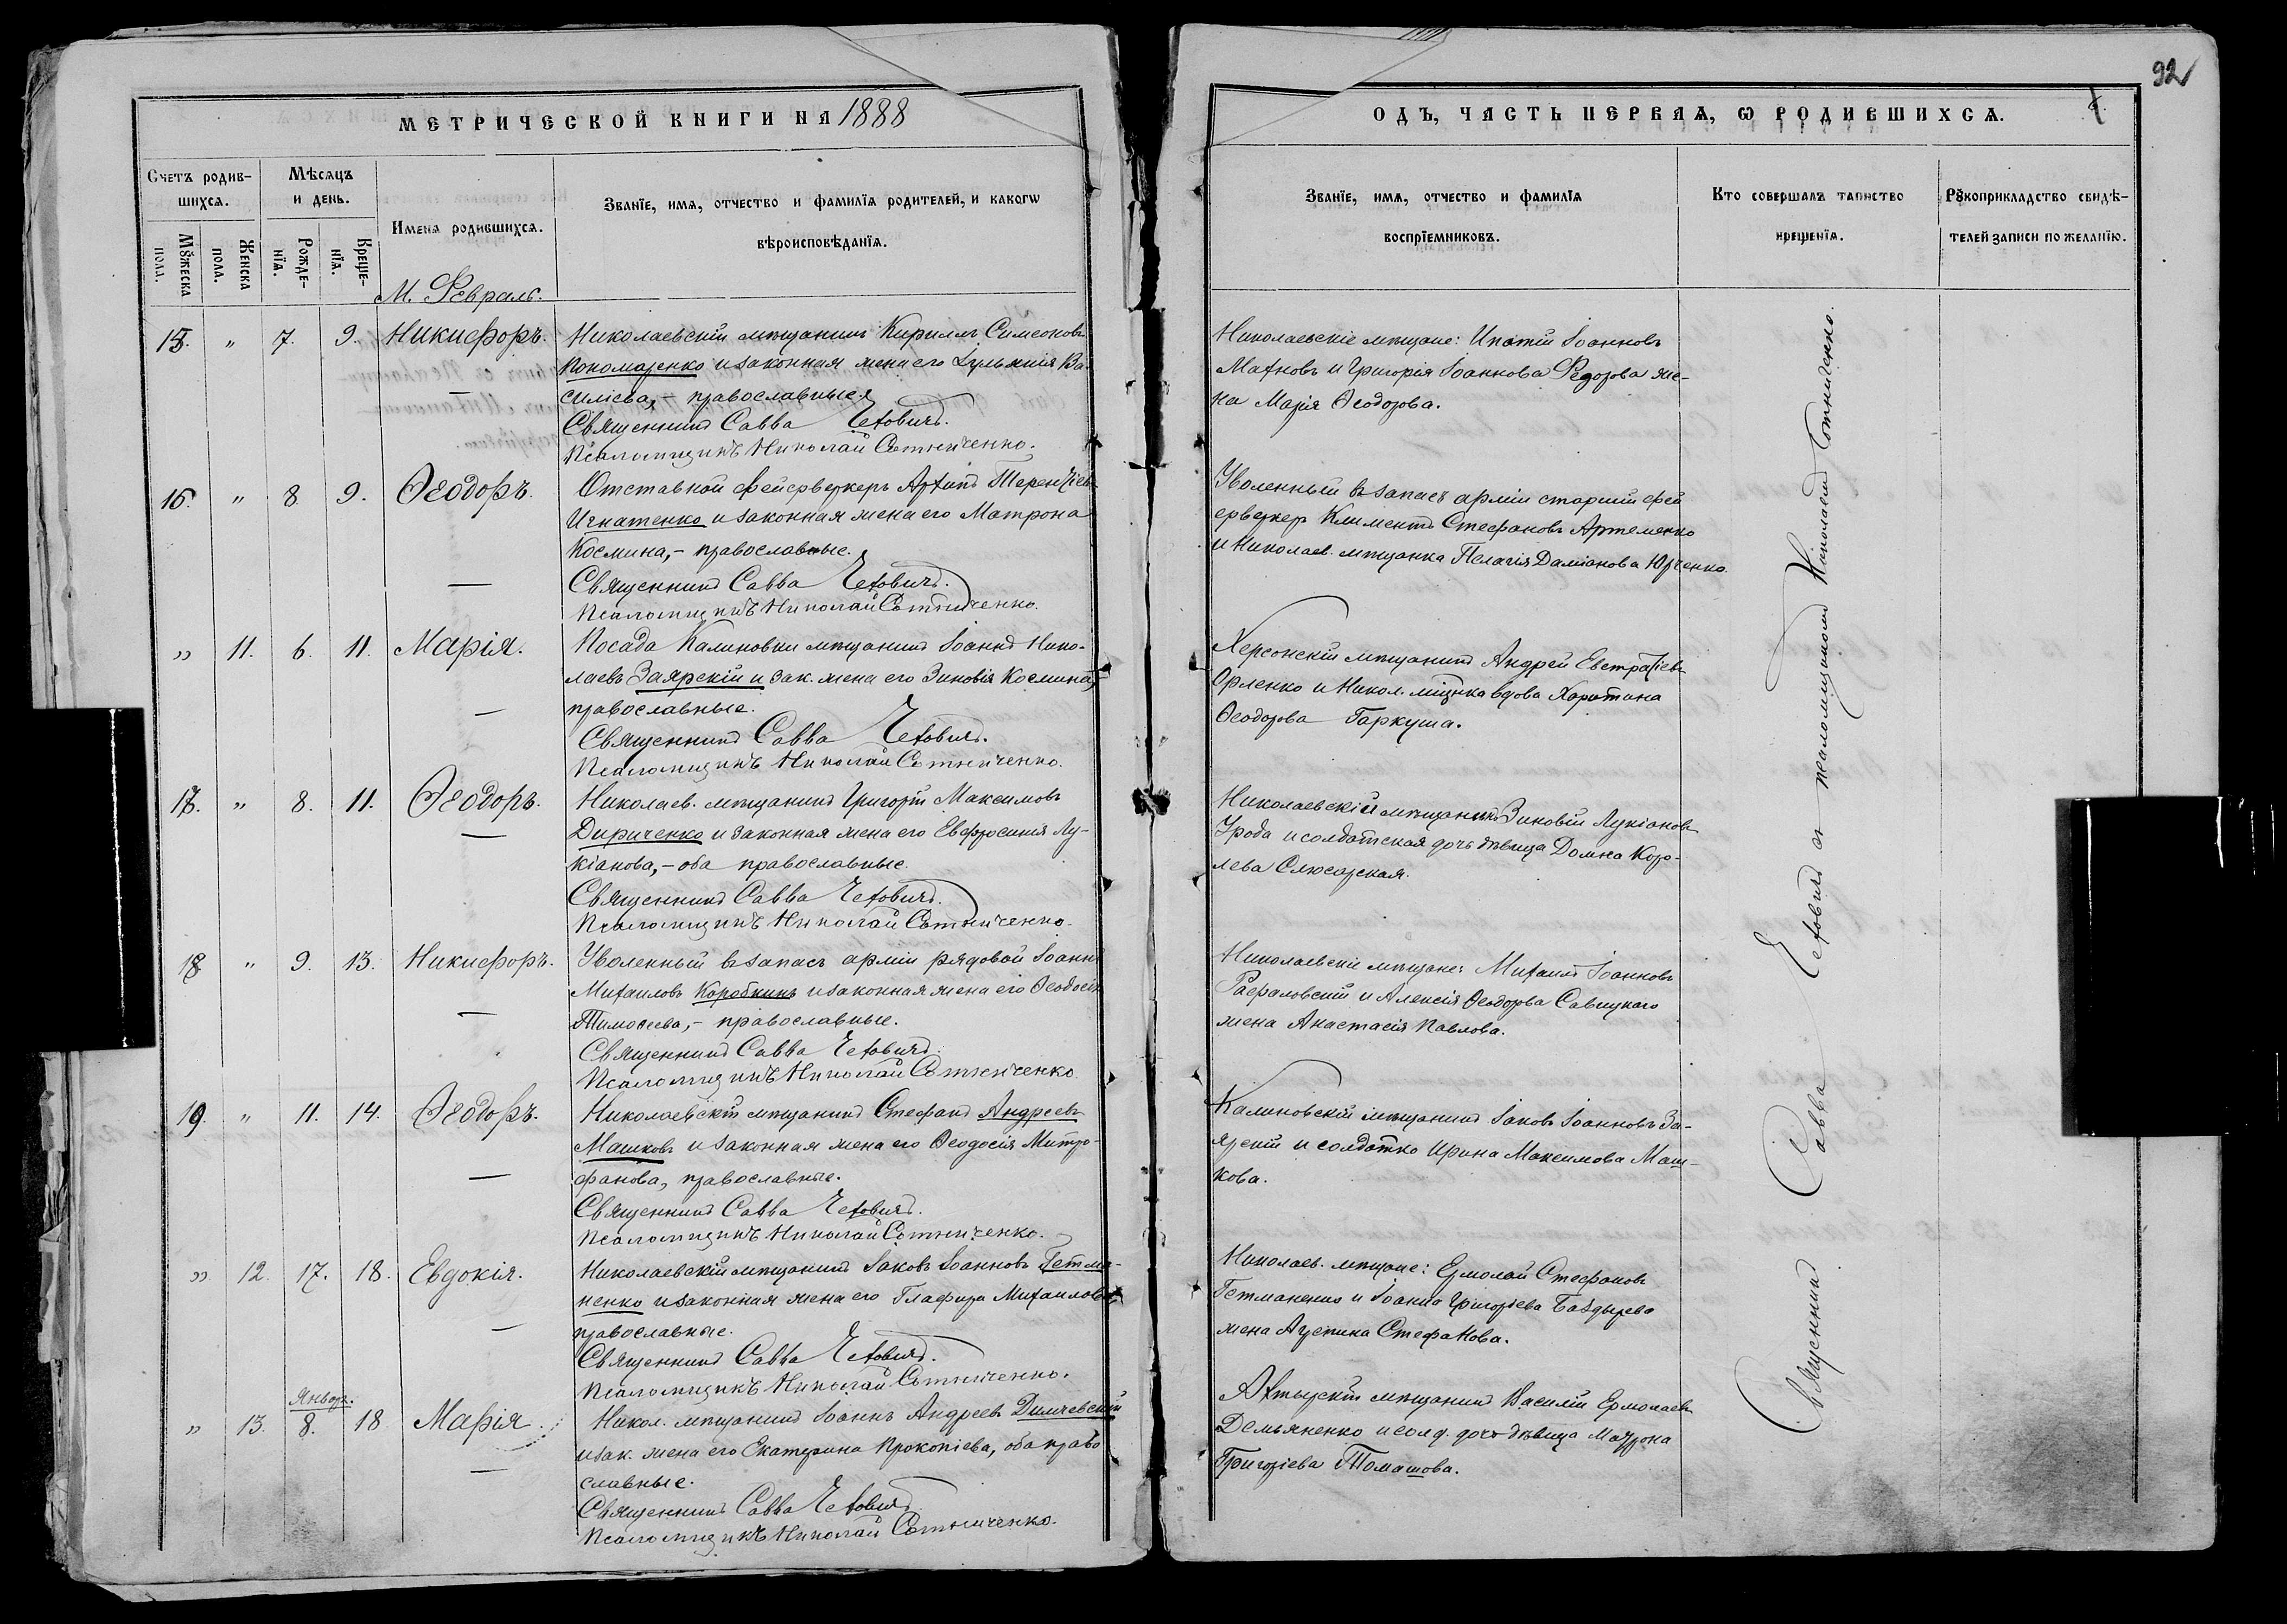 МЕТРИЧЕСКОЙ КНИГИ НА 1888
Счетъ родив-
шихся.
Мѣсяцъ
и день.
Имена родившихся.
Званїе, имя, отчество и фамилїя родителей, и какогѡ
вѣроисповѣданїя.
Мꙋжеска
пола.
Женска
пола.
Рожде-
нїя.
Креще-
нїя.
М. Февраль.
15. „ 7. 9. Никифоръ.
Николаевскій мѣщанинъ Кириллъ Симеоновъ
Пономаренко и законная жена его Іульянія Ва-
силіева, – православные
Священникъ Савва Чеховичъ.
Псаломщикъ Николай Сотниченко.
16. „ 8. 9. Ѳеодоръ.
Отставной фейерверкеръ Архипъ Терентіевъ
Игнатенко и законная жена его Матрона
Космина, – православные.
Священникъ Савва Чеховичъ.
Псаломщикъ Николай Сотниченко.
„ 11. 6. 11. Марія.
Посада Калиновки мѣщанинъ Іоаннъ Нико-
лаевъ Заярскій и зак. жена его Зиновія Космина,
православные.
Священникъ Савва Чеховичъ.
Псаломщикъ Николай Сотниченко.
17. „ 8. 11. Ѳеодоръ.
Николаев. мѣщанинъ Григорій Максимовъ
Дириченко и законная жена его Евфросинія Лу-
кіанова, – оба православные.
Священникъ Савва Чеховичъ.
Псаломщикъ Николай Сотниченко.
18 „ 9. 13. Никифоръ.
Уволенный въ запасъ арміи рядовой Іоаннъ
Михаиловъ Коробкинъ и законная жена его Ѳеодосія
Тимоѳеева, – православные.
Священникъ Савва Чеховичъ.
Псаломщикъ Николай Сотниченко.
19. „ 11. 14. Ѳеодоръ.
Николаевскій мѣщанинъ Стефанъ Андреевъ
Машковъ и законная жена его Ѳеодосія Митро-
фанова, православные.
Священникъ Савва Чеховичъ.
Псаломщикъ Николай Сотниченко.
„ 12. 17. 18. Евдокія.
Николаевскій мѣщанинъ Іаковъ Іоанновъ Гетма-
ненко и законная жена его Глафира Михаилова,
православные.
Священникъ Савва Чеховичъ.
Псаломщикъ Николай Сотниченко.
Январ.
„ 13. 8. 18 Марія.
Никол. мѣщанинъ Іоаннъ Андреевъ Димчевскій
и зак. жена его Екатерина Прокопіева, оба право
славные.
Священникъ Савва Чеховичъ
Псаломщикъ Николай Сотниченко.
92
ОДЪ, ЧАСТЬ ПЕРВАЯ, Ѡ РОДИВШИХСЯ.
Званїе, имя, отчество и фамилїя
воспрїемниковъ.
Кто совершалъ таинство
крещенїя.
Рꙋкоприкладство свидѣ-
телей записи по желанїю.
Николаевскіе мѣщане: Ипатій Іоанновъ
Махновъ и Григорія Іоаннова Федорова же-
на Марія Ѳеодорова.
Уволенный въ запасъ арміи старшій фей
ерверкеръ Климентъ Стефановъ Артеменко
и Николаев. мѣщанка Пелагія Даміанова Юрченко.
Херсонскій мѣщанинъ Андрей Евстратіевъ
Орленко и Никол. мѣщнка вдова Харитина
Ѳеодорова Гаркуша.
Николаевскій мѣщанинъ Зиновій Лукіановъ
Урода и солдатская дочь дѣвица Домна Коро-
лева Слюсарская.
Николаевскіе мѣщане: Михаилъ Іоанновъ
Рафаловскій и Алексія Ѳеодорова Савицкаго
жена Анастасія Павлова.
Калиновскій мѣщанинъ Іаковъ Іоанновъ За-
ярскій и солдатка Ирина Максимова Маш-
кова.
Николаев. мѣщане: Ермолай Стефановъ
Гетманенко и Іоанна Григоріева Баздырева
жена Агрипина Стефанова.
Ахтырскій мѣщанинъ Василій Ермолаевъ
Демьяненко и солд. дочь дѣвица Матрона
Григоріева Томашова.
Священникъ Савва Чеховичъ съ псаломщикомъ Николаемъ Сотниченко.